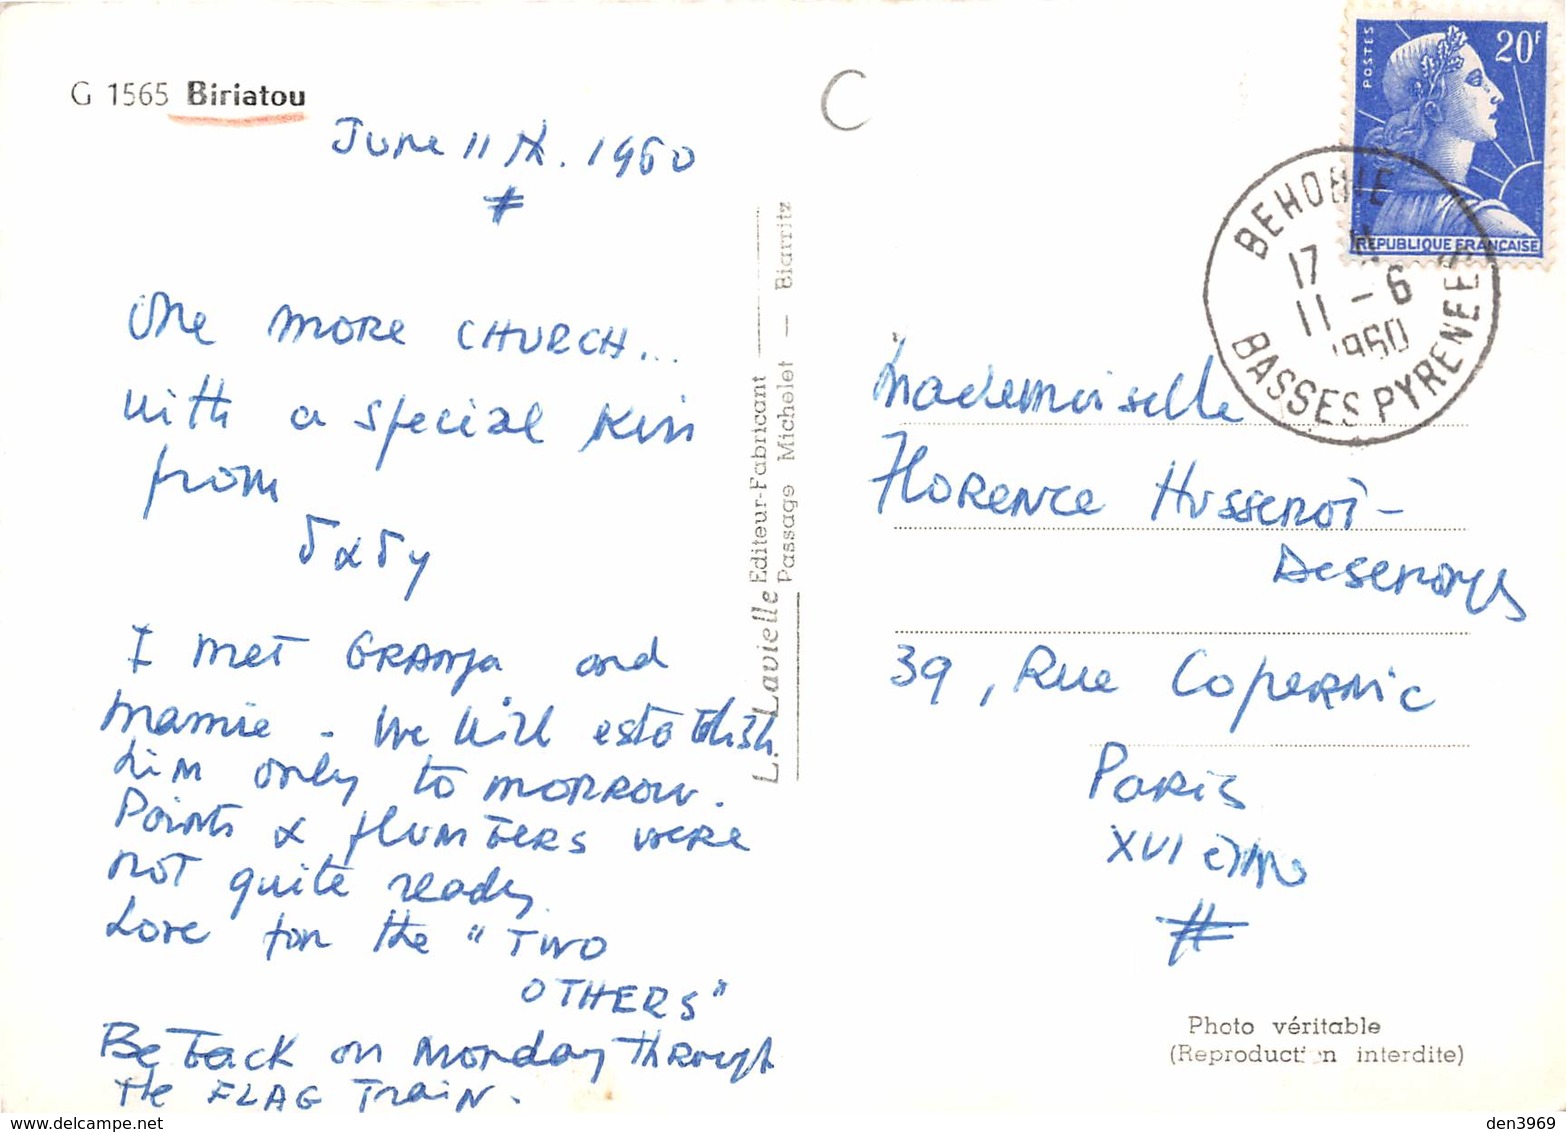 G 1565 Biriatou
June 11th. 1960
One more CHURCH...
with a special kiss
from
δαδy
I met GRANJA and
Mamie - We will establish
him only to morrow.
Points & plumbers were
not quite ready.
Love for the "TWO
OTHERS"
Be back on Monday through
the FLAG Train.
L. Lavielle Editeur-Fabricant
Passage Michelet — Biarritz
C
POSTES
20F
REPUBLIQUE FRANÇAISE
BEHOBIE
17 H
11 - 6
1960
BASSES PYRENEES
Mademoiselle
Florence Hussenot-
Desenonges
39, Rue Copernic
Paris
XVI ème
Photo véritable
(Reproduction interdite)
www.delcampe.net
den3969